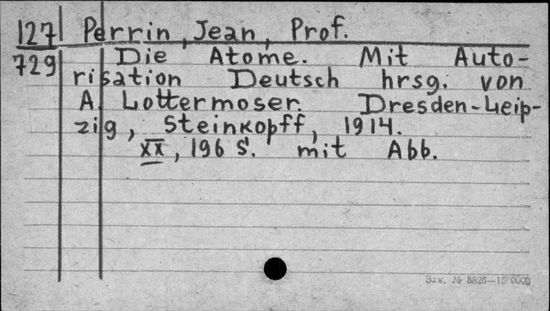 127 Perrin, Jean, Prof.
729 Die Atome. Mit Auto-
risation Deutsch hrsg. von
A. Lottermoser. Dresden-Leip-
zig, Steinkopff, 1914.
XX, 196 S. mit Abb.
Зак. № 8826—15 0000